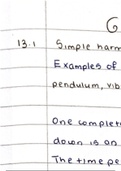 G
13.1 Simple harm
Examples of
pendulum, vib
One complet
down is an
The time pe